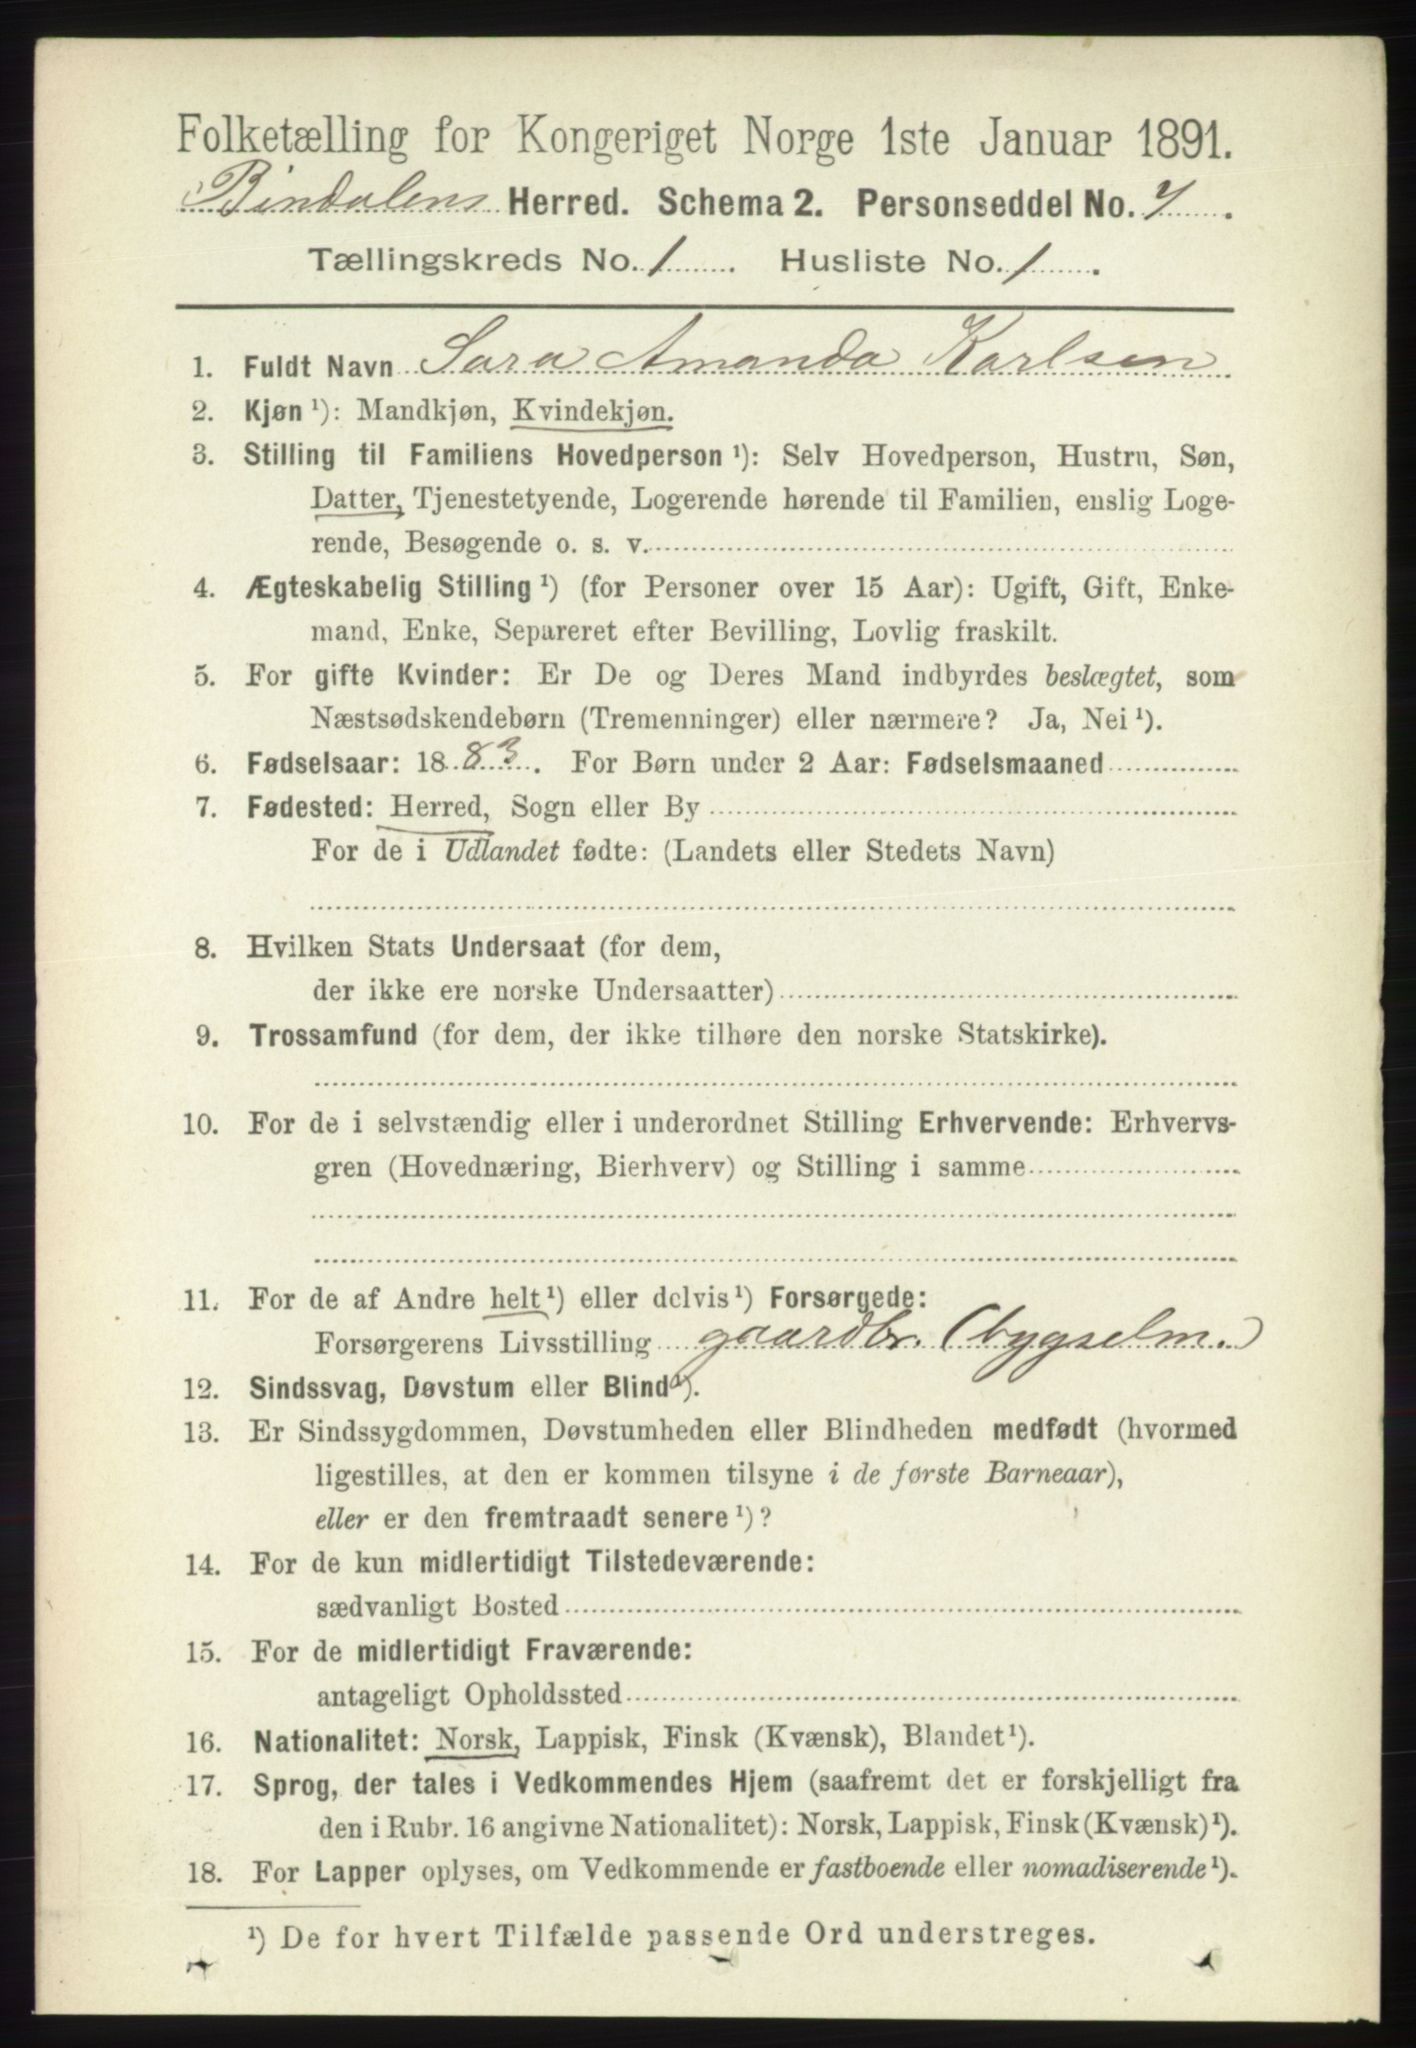 Folketælling for Kongeriget Norge 1ste Januar 1891.
Bindalens Herred. Schema 2. Personseddel No. 7.
Tællingskreds No. 1. Husliste No. 1.
1. Fuldt Navn Sara Amanda Karlsen
2. Kjøn ¹): Mandkjøn, Kvindekjøn.
3. Stilling til Familiens Hovedperson ¹): Selv Hovedperson, Hustru, Søn,
Datter, Tjenestetyende, Logerende hørende til Familien, enslig Loge-
rende, Besøgende o. s. v.
4. Ægteskabelig Stilling ¹) (for Personer over 15 Aar): Ugift, Gift, Enke-
mand, Enke, Separeret efter Bevilling, Lovlig fraskilt.
5. For gifte Kvinder: Er De og Deres Mand indbyrdes beslægtet, som
Næstsødskendebørn (Tremenninger) eller nærmere? Ja, Nei ¹).
6. Fødselsaar: 1883. For Børn under 2 Aar: Fødselsmaaned
7. Fødested: Herred, Sogn eller By
For de i Udlandet fødte: (Landets eller Stedets Navn)
8. Hvilken Stats Undersaat (for dem,
der ikke ere norske Undersaatter)
9. Trossamfund (for dem, der ikke tilhøre den norske Statskirke).
10. For de i selvstændig eller i underordnet Stilling Erhvervende: Erhvervs-
gren (Hovednæring, Bierhverv) og Stilling i samme
11. For de af Andre helt ¹) eller delvis ¹) Forsørgede:
Forsørgerens Livsstilling gaardbr. (bygselm.)
12. Sindssvag, Døvstum eller Blind ¹).
13. Er Sindssygdommen, Døvstumheden eller Blindheden medfødt (hvormed
ligestilles, at den er kommen tilsyne i de første Barneaar),
eller er den fremtraadt senere ¹)?
14. For de kun midlertidigt Tilstedeværende:
sædvanligt Bosted
15. For de midlertidigt Fraværende:
antageligt Opholdssted
16. Nationalitet: Norsk, Lappisk, Finsk (Kvænsk), Blandet ¹).
17. Sprog, der tales i Vedkommendes Hjem (saafremt det er forskjelligt fra
den i Rubr. 16 angivne Nationalitet): Norsk, Lappisk, Finsk (Kvænsk) ¹).
18. For Lapper oplyses, om Vedkommende er fastboende eller nomadiserende ¹).
¹) De for hvert Tilfælde passende Ord understreges.